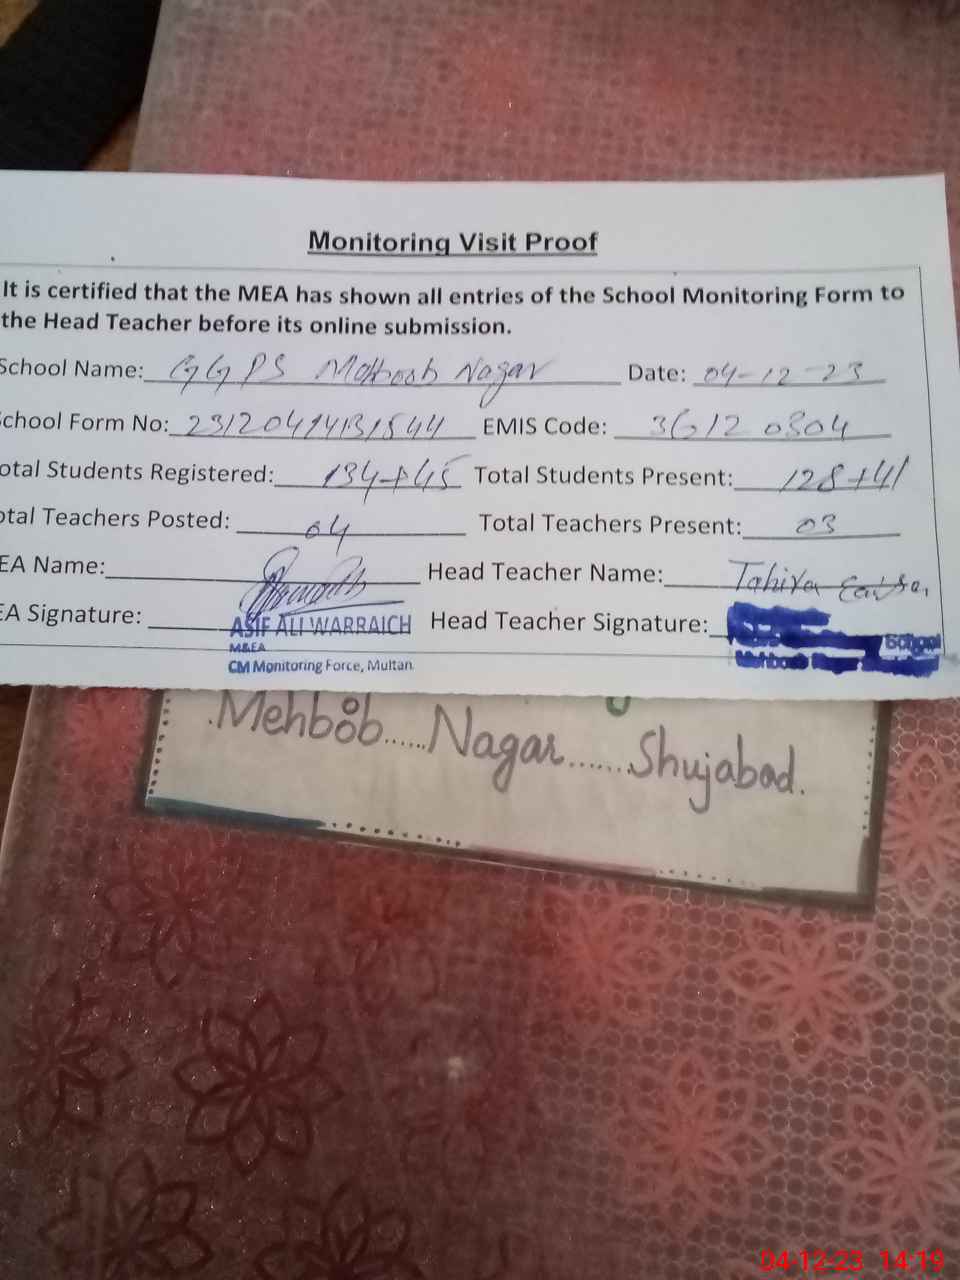 Monitoring Visit Proof
It is certified that the MEA has shown all entries of the School Monitoring Form to
the Head Teacher before its online submission.
School Name: GGPS Mehboob Nagar Date: 04-12-23
chool Form No: 23120414131544 EMIS Code: 36120304
otal Students Registered: 134+45 Total Students Present: 128+41
otal Teachers Posted: 04 Total Teachers Present: 03
EA Name: Head Teacher Name: Tahira
EA Signature: Head Teacher Signature:
ASIF ALI WARRAICH
M&EA
CM Monitoring Force, Multan
School
Mehboob Nagar
Mehbob......Nagar.......Shujabad.
04-12-23 14:19